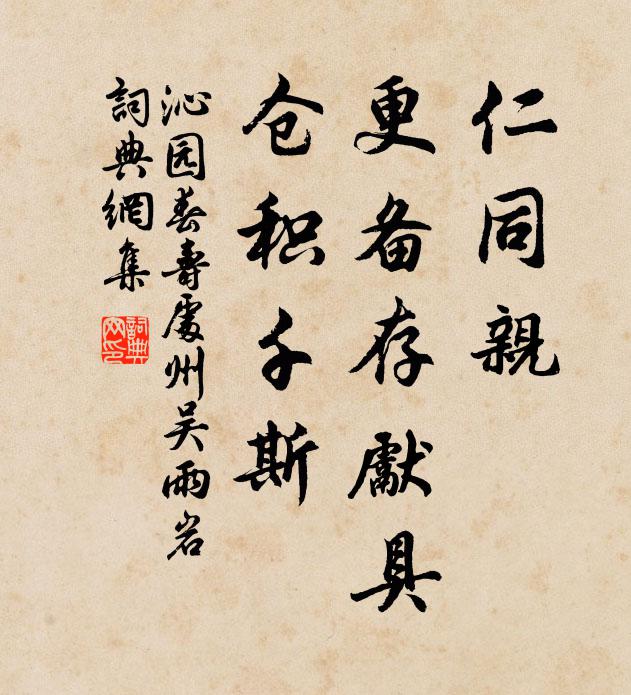 仁同親
更备存獻具
仓积千斯
沁园春壽處州吴雨岩
詞典網集
詞典网印